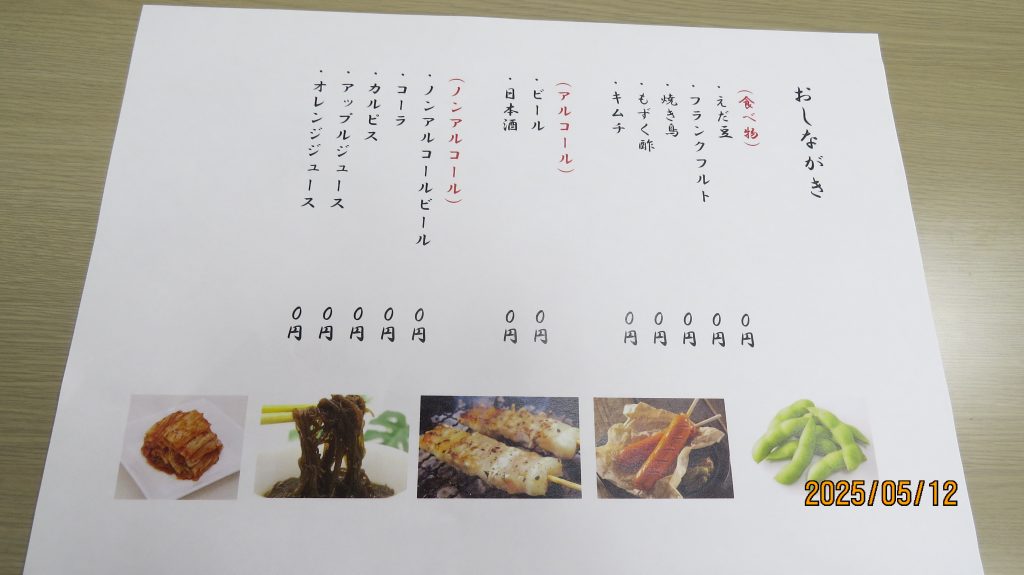 おしながき
(食べ物)
・えだ豆 0円
・フランクフルト 0円
・焼き鳥 0円
・もずく酢 0円
・キムチ 0円
(アルコール)
・ビール 0円
・日本酒 0円
(ノンアルコール)
・ノンアルコールビール 0円
・コーラ 0円
・カルピス 0円
・アップルジュース 0円
・オレンジジュース 0円
2025/05/12